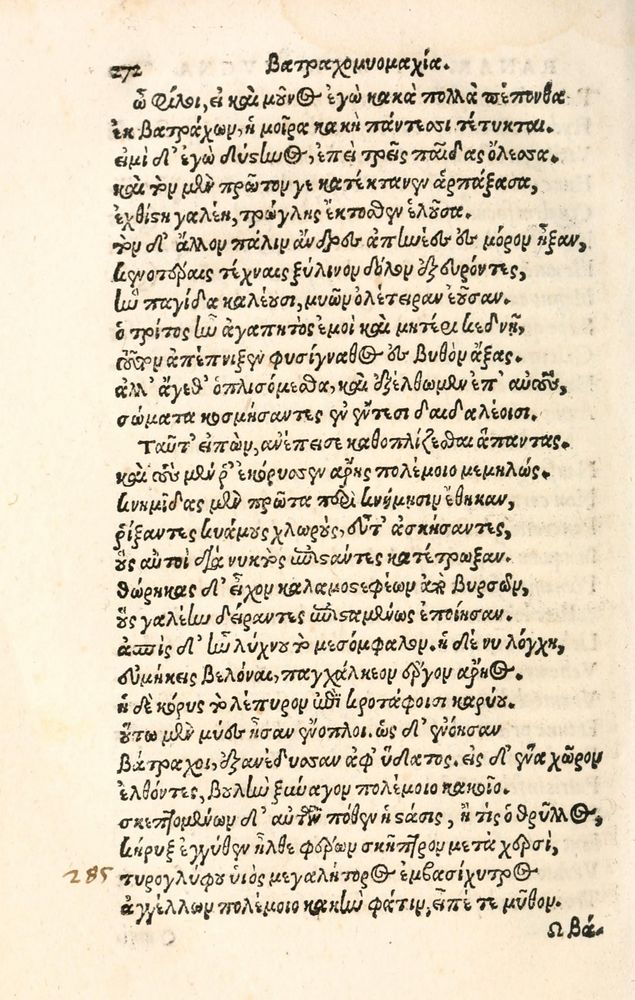 272 Βατραχομυομαχία.
ὦ Φίλοι, εἰ καὶ μοῦνος ἐγὼ κακὰ πολλὰ πέπονθα
ἐκ βατράχων, ἡ μοῖρα κακὴ πάντεσι τέτυκται.
εἰμὶ δ' ἐγὼ δύστηνος, ἐπεὶ τρεῖς παῖδας ὄλεσσα.
καὶ τὸν μὲν πρῶτον γε κατέκτανεν ἁρπάξασα,
ἐχθίστη γαλέη, τρώγλης ἔκτοσθεν ἑλοῦσα.
τὸν δ' ἄλλον πάλιν ἄνδρες ἀπηνέες ἐς μόρον ἦξαν,
καινοτέραις τέχναις ξύλινον δόλον ἐξευρόντες,
ἣν παγίδα καλέουσι, μυῶν ὀλέτειραν ἐοῦσαν.
ὁ τρίτος ἦν ἀγαπητὸς ἐμοὶ καὶ μητέρι κεδνῇ,
τοῦτον ἀπέπνιξεν φυσίγναθος ἐς βυθὸν ἄξας.
ἀλλ' ἄγεθ' ὁπλισόμεσθα, καὶ ἐξέλθωμεν ἐπ' αὐτούς,
σώματα κοσμήσαντες ἐν ἔντεσι δαιδαλέοισι.
Ταῦτ' εἰπὼν, ἀνέπεισε καθοπλίζεσθαι ἅπαντας.
καὶ τοὺς μέν ῥ' ἐκόρυσσεν ἄρης πολέμοιο μεμηλώς.
κνημῖδας μὲν πρῶτα περὶ κνήμησιν ἔθηκαν,
ῥίξαντες κυάμους χλωροὺς, εὖτ' ἀσκήσαντες,
οὓς αὐτοὶ διὰ νυκτὸς ἐπιστάντες κατέτρωξαν.
θώρηκας δ' εἶχον καλαμοστεφέων ἀπὸ βυρσῶν,
οὓς γαλέην δείραντες ἐπισταμένως ἐποίησαν.
ἀσπὶς δ' ἦν λύχνου τὸ μεσόμφαλον. ἡ δέ νυ λόγχη,
εὐμήκεις βελόναι, παγχάλκεον ἔργον ἄρηος.
ἡ δὲ κόρυς τὸ λέπυρον ἐπὶ κροτάφοισι καρύου.
οὕτω μὲν μύες ἦσαν ἔνοπλοι. ὡς δ' ἐνόησαν
βάτραχοι, ἐξανέδυσαν ἀφ' ὕδατος. εἰς δ' ἕνα χῶρον
ἐλθόντες, βουλὴν ξύναγον πολέμοιο κακοῖο.
σκεπτομένων δ' αὐτῶν πόθεν ἡ στάσις, ἢ τίς ὁ θρῦλλος,
κήρυξ ἐγγύθεν ἦλθε φέρων σκῆπτρον μετὰ χερσὶ,
285 τυρογλύφου υἱὸς μεγαλήτορος ἐμβασίχυτρος
ἀγγέλλων πολέμοιο κακὴν φάτιν, εἶπέ τε μῦθον.
Ω βά-